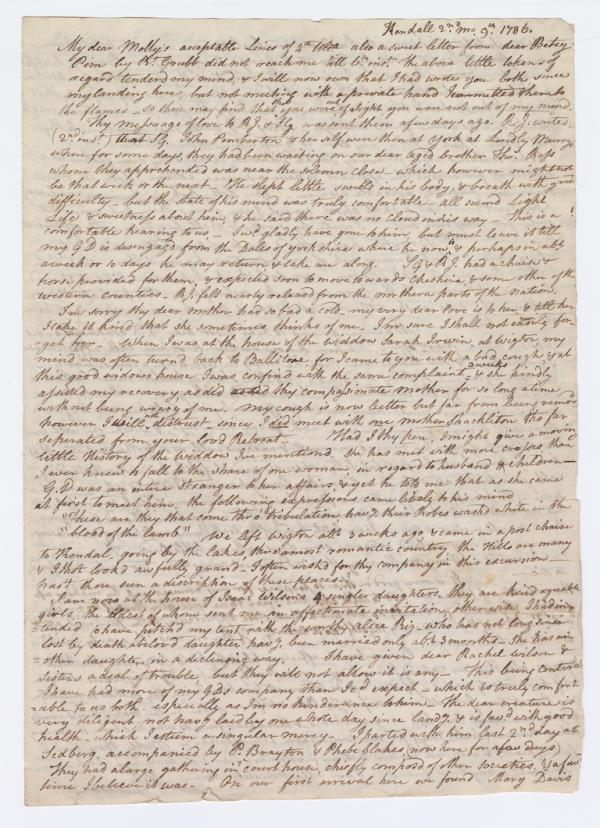 Kendall 2nd mo 9th 1786.
My dear Molly's acceptable Lines of 4th also a sweet letter from dear Betsy
Pim by R. Grubb did not reach me till 6th inst. the above little tokens of
regard tenderd my mind, & I will now own that I had wrote you both, since
my landing here, but not meeting with a private hand I committed them to
the flames – so thou may find that tho' you were out of sight you were not out of my mind.
Thy message of love to R.J. & SG was sent them a few days ago. R.J. writes
(2nd inst.) that SG. John Pemberton & herself were then at York at Lindly Murrys
where for some days, they had been waiting on our dear aged brother Thos. Ross
whom they apprehended was near the solemn close which however might not
be that week or the next – He slept little swells in his body, & breath with great
difficulty – but the State of his mind was truly comfortable all seemd Light
Life & sweetness about him, & he said there was no cloud in his way – This is a
comfortable hearing to us – I wd. gladly have gone to him, but must leave it till
my G D is disengagd from the Dales of yorkshire where he now is & perhaps in abt.
a week or 10 days he may return & take me along. SG & R.J. had a chaise &
horse provided for them, & expected soon to move towards Cheshire, & some other of the
western counties – R.J. felt nearly released from the northern parts of the nation.
I'm sorry thy dear mother had so bad a cold, my very dear love is to her & tell her
I take it kind that she sometimes thinks of me. I'm sure I shall not easily for-
get her – When I was at the house of the widdow Sarah Irwin, at Wigton, my
mind was often turn'd back to Ballitore for I came to you with a bad cough & at
this good widows house I was confind with the same complaint 3 weeks & she kindly
assisted my recovery, as did thy compassionate mother for so long a time
without being weary of me. My cough is now better but far from being remov'd
however I will not distrust, since I did meet with one mother Shackleton tho far
seperated from your Lovd Retreat. Had I thy pen, I might give a moving
little History of the widdow I've mentiond. She has met with more crosses than
I ever knew to fall to the share of one woman, in regard to husband & children –
G.D was an intire stranger to her affairs, & yet he tells me that as she came
at first to meet him, the following expressions came lively to his mind
"These are they that come thro' tribulation hav'g their Robes wash'd white in the
"blood of the lamb" We left Wigton abt. 3 weeks ago & came in a post chaise
to Kendal, going by the Lakes, thro' a most romantic country, the Hills are many
& I tho't look'd awfully grand – I often wish'd for thy company in this excursion –
has't thou seen a discription of these places.
I am now at the house of Isaac Wilson's 4 single daughters. they are kind agreable
girls, the eldest of whom sent me an affectionate invitation, otherwise I had in-
tended to have pitch'd my tent with the worthy alice Rig, who has not long since
lost by death a belov'd daughter hav'g been married only abt. 3 months – She has an-
other daughter, in a declining way. I have given dear Rachel Wilson &
Sisters a deal of trouble, but they will not allow it is any – This being centered
I have had more of my G.Ds company than I cd. expect – which is truly comfort-
able to us both, especially as I'm no hinderance to him. The dear creature is
very diligent not hav'g laid by one whole day since land'g, & is fav'd with good
health – which I esteem a singular mercy – I parted with him last 2nd day at
Sedberg, accompanied by Ps. Brayton & Phebe Blakes (now here for a few days)
They had a large gathering in ye court house, chiefly composd of other Societies, & a fav'd
time I believe it was – On our first arrival here we found Mary Davis